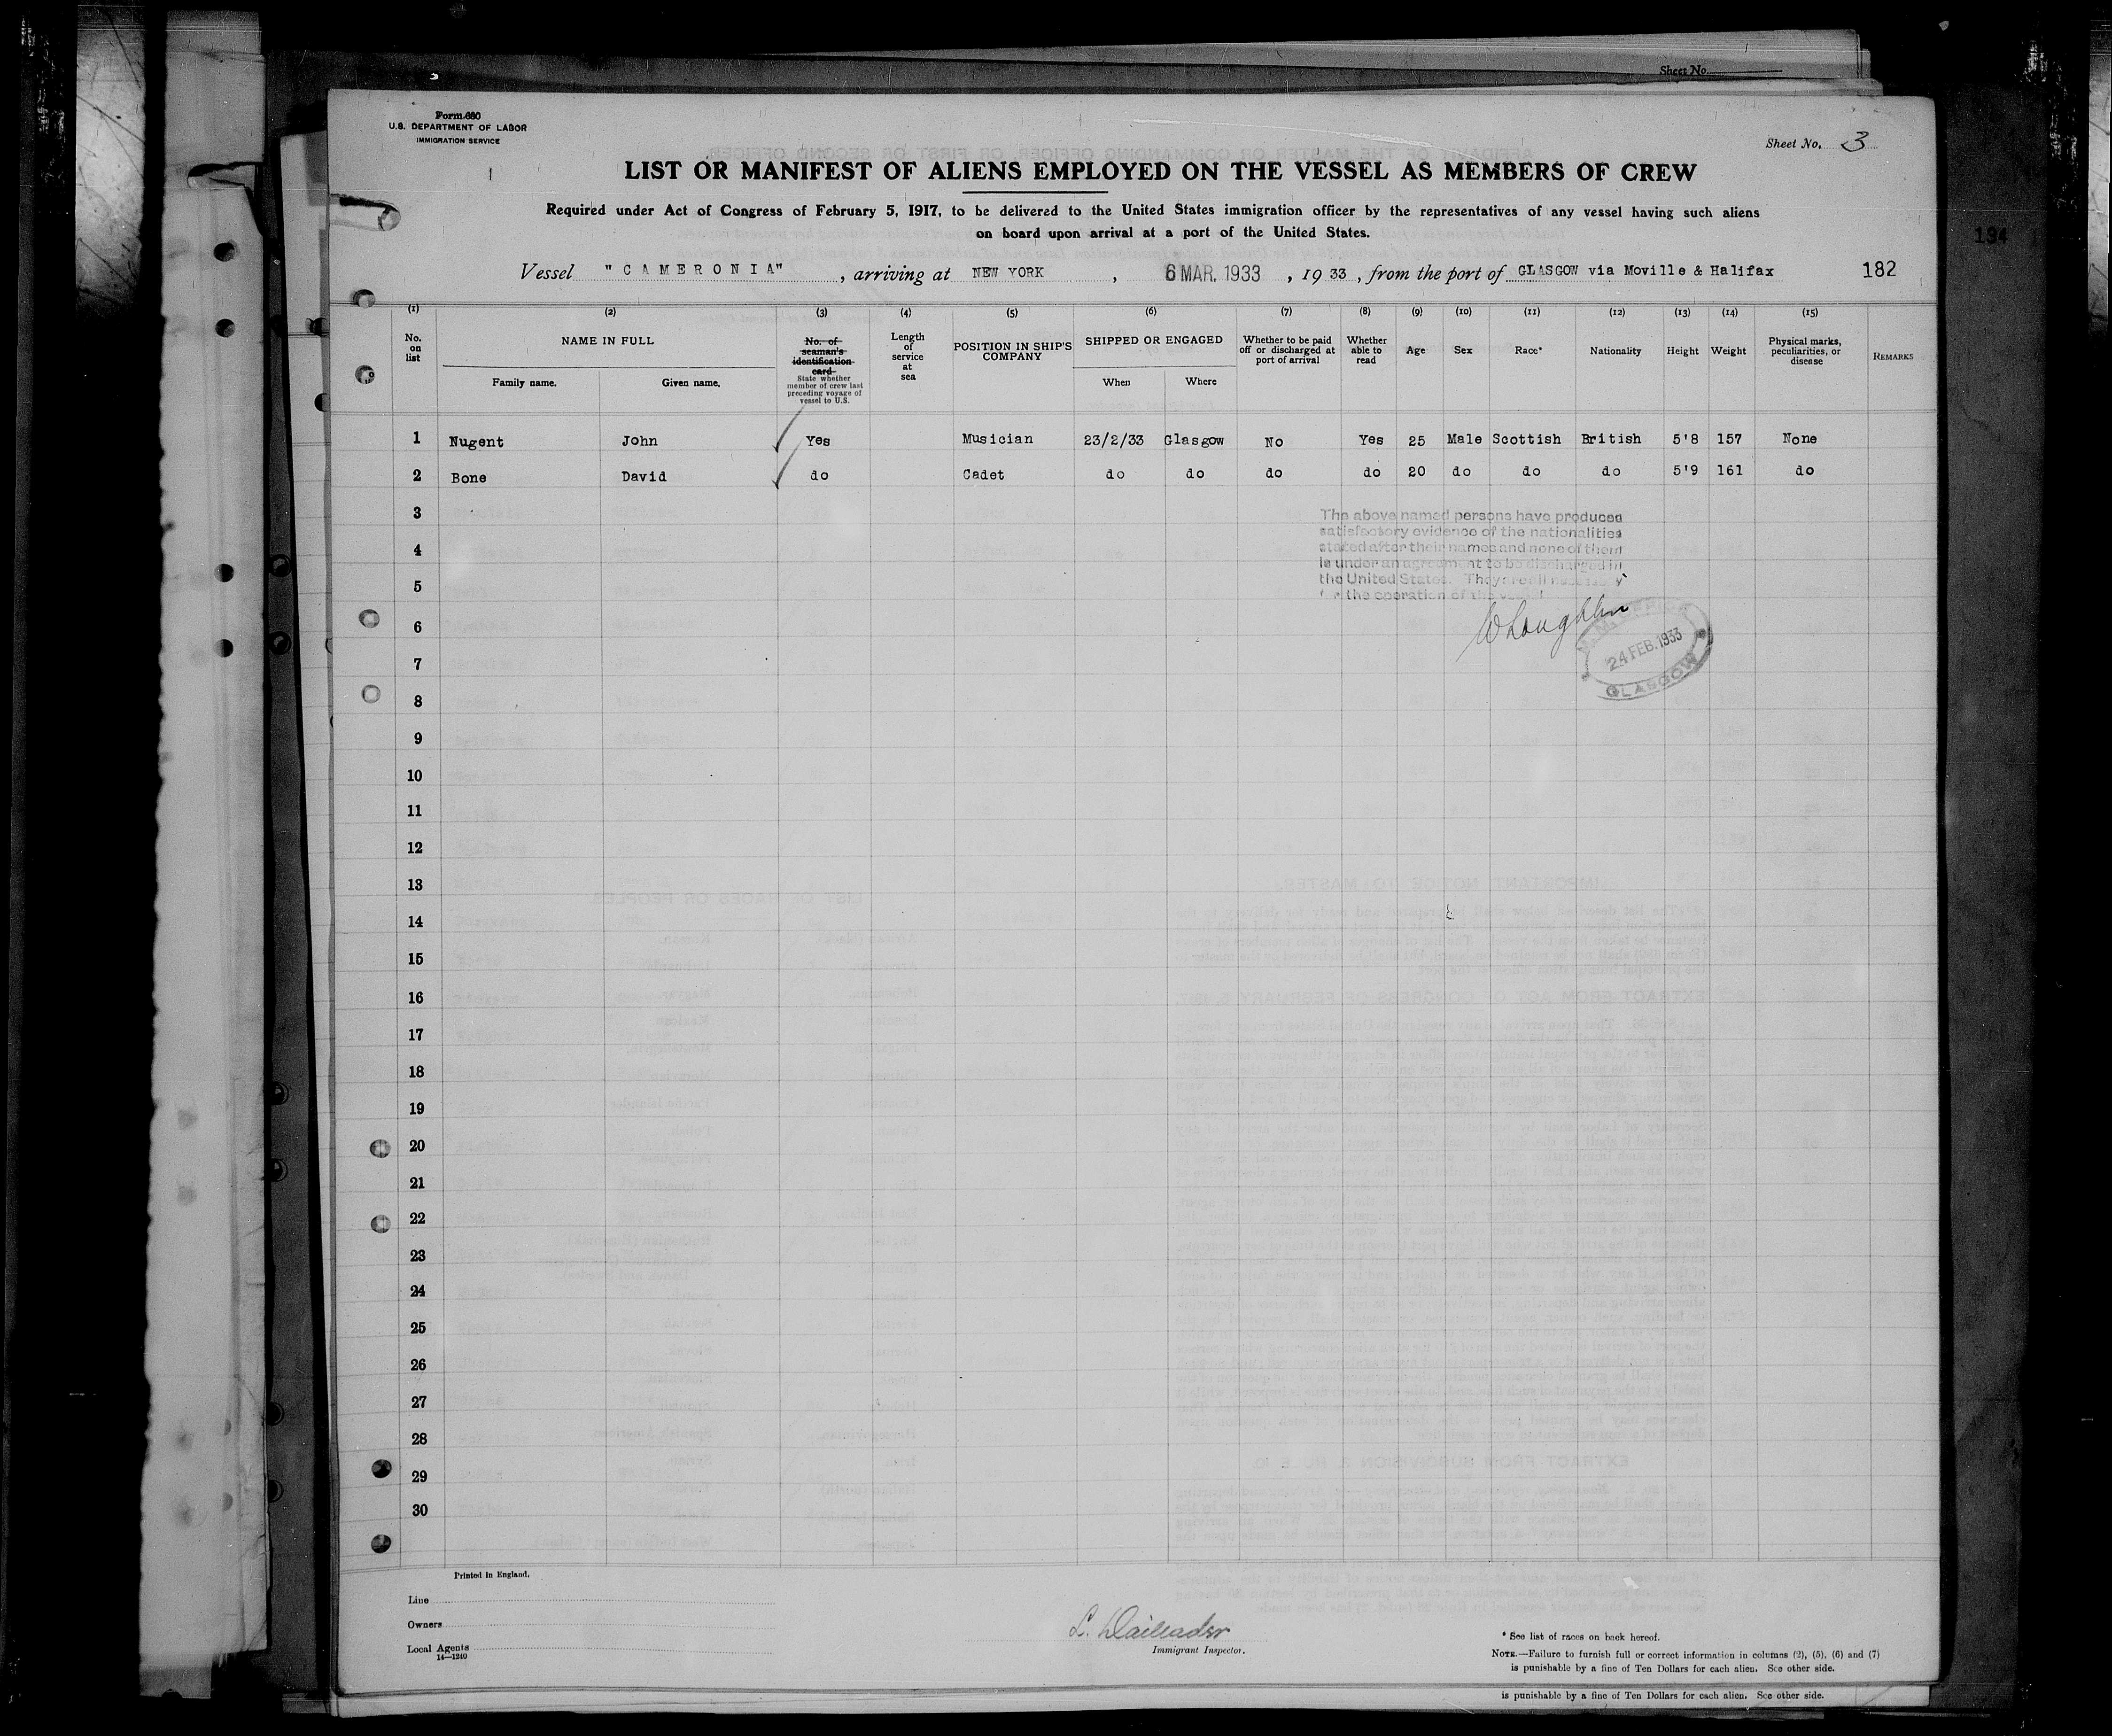 Sheet No.
Form 680
U.S. DEPARTMENT OF LABOR
IMMIGRATION SERVICE
Sheet No. 3
LIST OR MANIFEST OF ALIENS EMPLOYED ON THE VESSEL AS MEMBERS OF CREW
Required under Act of Congress of February 5, 1917, to be delivered to the United States immigration officer by the representatives of any vessel having such aliens
on board upon arrival at a port of the United States.
194
Vessel "CAMERONIA", arriving at NEW YORK, 6 MAR. 1933, 1933, from the port of GLASGOW via Moville & Halifax 182
(1) (2) (3) (4) (5) (6) (7) (8) (9) (10) (11) (12) (13) (14) (15)
No. on list NAME IN FULL Family name. Given name. No. of seaman's identification card State whether member of crew last preceding voyage of vessel to U.S. Length of service at sea POSITION IN SHIP'S COMPANY SHIPPED OR ENGAGED When Where Whether to be paid off or discharged at port of arrival Whether able to read Age Sex Race* Nationality Height Weight Physical marks, peculiarities, or disease REMARKS
1 Nugent John Yes Musician 23/2/33 Glasgow No Yes 25 Male Scottish British 5'8 157 None
2 Bone David do Cadet do do do do 20 do do do 5'9 161 do
3
The above named persons have produced
satisfactory evidence of the nationalities
4
stated after their names and none of them
is under an agreement to be discharged in
5
the United States. They are all necessary
for the operation of the vessel
6
W Loughlin
24 FEB. 1933
GLASGOW
7
8
9
10
11
12
13
14
15
16
17
18
19
20
21
22
23
24
25
26
27
28
29
30
Printed in England.
Line
Owners
Local Agents
14—1240
Immigrant Inspector.
* See list of races on back hereof.
NOTE.—Failure to furnish full or correct information in columns (2), (5), (6) and (7)
is punishable by a fine of Ten Dollars for each alien. See other side.
is punishable by a fine of Ten Dollars for each alien. See other side.